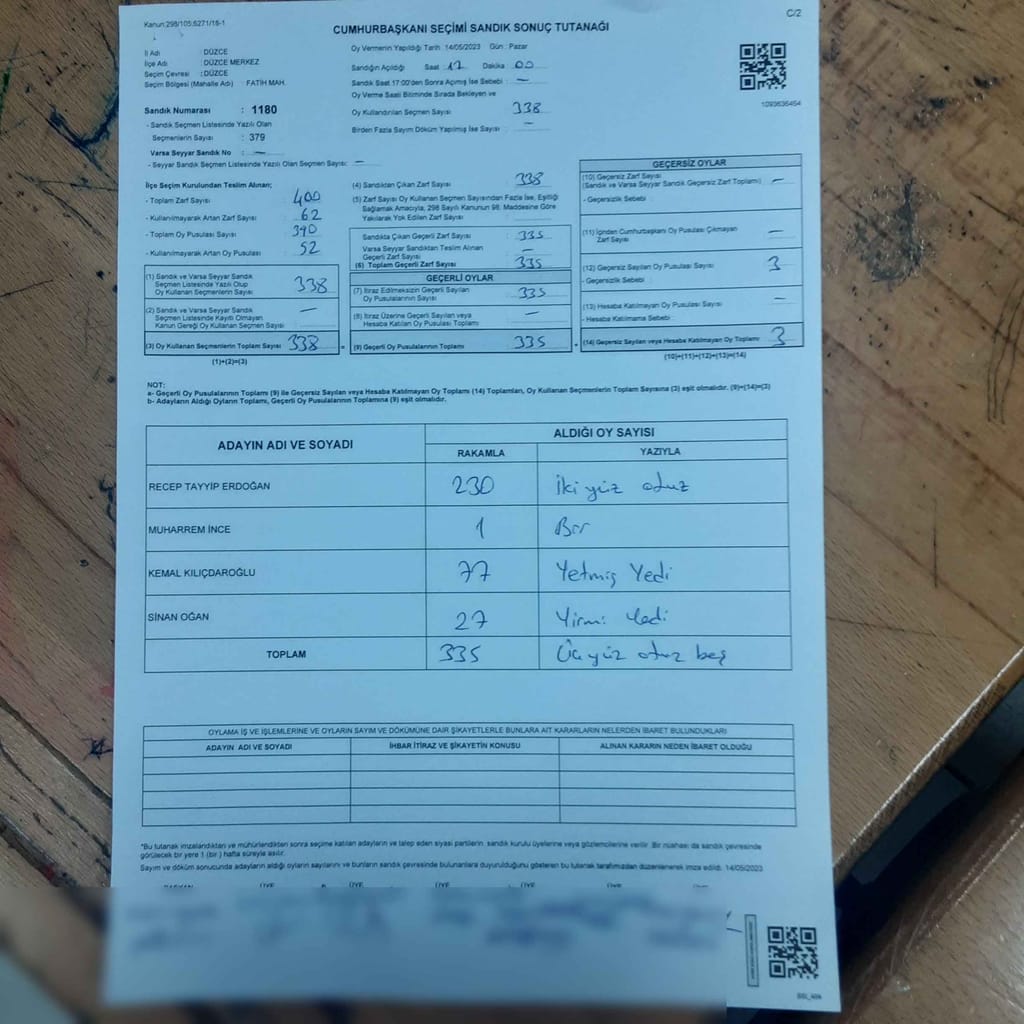 Kanun:298/105;6271/16-1
C/2
CUMHURBAŞKANI SEÇİMİ SANDIK SONUÇ TUTANAĞI
İl Adı : DÜZCE
İlçe Adı : DÜZCE MERKEZ
Seçim Çevresi : DÜZCE
Seçim Bölgesi (Mahalle Adı) FATİH MAH.
Sandık Numarası : 1180
- Sandık Seçmen Listesinde Yazılı Olan
Seçmenlerin Sayısı : 379
Varsa Seyyar Sandık No : —
- Seyyar Sandık Seçmen Listesinde Yazılı Olan Seçmen Sayısı: —
Oy Vermenin Yapıldığı Tarih 14/05/2023 Gün : Pazar
Sandığın Açıldığı Saat 17 Dakika 00
Sandık Saat 17:00'den Sonra Açılmış İse Sebebi : —
Oy Verme Saati Bitiminde Sırada Bekleyen ve
Oy Kullandırılan Seçmen Sayısı : 338
Birden Fazla Sayım Döküm Yapılmış İse Sayısı : —
1093636464
İlçe Seçim Kurulundan Teslim Alınan;
- Toplam Zarf Sayısı : 400
- Kullanılmayarak Artan Zarf Sayısı : 62
- Toplam Oy Pusulası Sayısı : 390
- Kullanılmayarak Artan Oy Pusulası : 52
(1) Sandık ve Varsa Seyyar Sandık
Seçmen Listesinde Yazılı Olup
Oy Kullanan Seçmenlerin Sayısı : 338
(2) Sandık ve Varsa Seyyar Sandık
Seçmen Listesinde Kayıtlı Olmayan
Kanun Gereği Oy Kullanan Seçmen Sayısı : —
(3) Oy Kullanan Seçmenlerin Toplam Sayısı : 338
(1)+(2)=(3)
(4) Sandıktan Çıkan Zarf Sayısı : 338
(5) Zarf Sayısı Oy Kullanan Seçmen Sayısından Fazla İse, Eşitliği
Sağlamak Amacıyla, 298 Sayılı Kanunun 98. Maddesine Göre
Yakılarak Yok Edilen Zarf Sayısı :
Sandıkta Çıkan Geçerli Zarf Sayısı : 335
Varsa Seyyar Sandıktan Teslim Alınan
Geçerli Zarf Sayısı : —
(6) Toplam Geçerli Zarf Sayısı : 335
GEÇERLİ OYLAR
(7) İtiraz Edilmeksizin Geçerli Sayılan
Oy Pusulalarının Sayısı : 335
(8) İtiraz Üzerine Geçerli Sayılan veya
Hesaba Katılan Oy Pusulası Toplamı : —
= (9) Geçerli Oy Pusulalarının Toplamı : 335
GEÇERSİZ OYLAR
(10) Geçersiz Zarf Sayısı
(Sandık ve Varsa Seyyar Sandık Geçersiz Zarf Toplamı) : —
- Geçersizlik Sebebi :
(11) İçinden Cumhurbaşkanı Oy Pusulası Çıkmayan
Zarf Sayısı : —
(12) Geçersiz Sayılan Oy Pusulası Sayısı : 3
- Geçersizlik Sebebi :
(13) Hesaba Katılmayan Oy Pusulası Sayısı : —
- Hesaba Katılmama Sebebi :
+ (14) Geçersiz Sayılan veya Hesaba Katılmayan Oy Toplamı : 3
(10)+(11)+(12)+(13)=(14)
NOT:
a- Geçerli Oy Pusulalarının Toplamı (9) ile Geçersiz Sayılan veya Hesaba Katılmayan Oy Toplamı (14) Toplamları, Oy Kullanan Seçmenlerin Toplam Sayısına (3) eşit olmalıdır. (9)+(14)=(3)
b- Adayların Aldığı Oyların Toplamı, Geçerli Oy Pusulalarının Toplamına (9) eşit olmalıdır.
ADAYIN ADI VE SOYADI ALDIĞI OY SAYISI
RAKAMLA YAZIYLA
RECEP TAYYİP ERDOĞAN 230 İki yüz otuz
MUHARREM İNCE 1 Bir
KEMAL KILIÇDAROĞLU 77 Yetmiş Yedi
SİNAN OĞAN 27 Yirmi Yedi
TOPLAM 335 Üç yüz otuz beş
OYLAMA İŞ VE İŞLEMLERİNE VE OYLARIN SAYIM VE DÖKÜMÜNE DAİR ŞİKAYETLERLE BUNLARA AİT KARARLARIN NELERDEN İBARET BULUNDUKLARI
ADAYIN ADI VE SOYADI İHBAR İTİRAZ VE ŞİKAYETİN KONUSU ALINAN KARARIN NEDEN İBARET OLDUĞU
*Bu tutanak imzalandıktan ve mühürlendikten sonra seçime katılan adayların ve talep eden siyasi partilerin, sandık kurulu üyelerine veya gözlemcilerine verilir. Bir nüshası da sandık çevresinde
görülecek bir yere 1 (bir) hafta süreyle asılır.
Sayım ve döküm sonucunda adayların aldığı oyların sayılarını ve bunların sandık çevresinde bulunanlara duyurulduğunu gösteren bu tutanak tarafımızdan düzenlenerek imza edildi. 14/05/2023
BAŞKAN ÜYE ÜYE ÜYE ÜYE ÜYE ÜYE